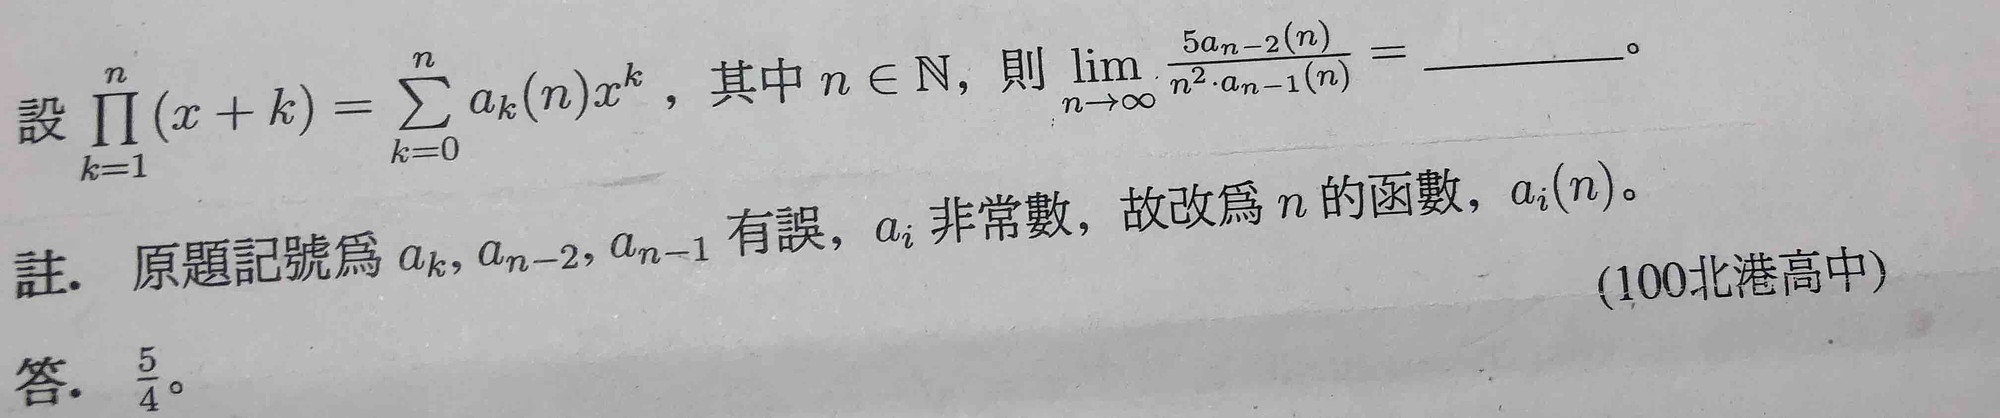 設 $\prod_{k=1}^{n}(x+k)=\sum_{k=0}^{n}a_k(n)x^k$，其中 $n\in\mathbb{N}$，則 $\lim_{n\to\infty}\frac{5a_{n-2}(n)}{n^2\cdot a_{n-1}(n)}=$ ________。
註. 原題記號爲 $a_k, a_{n-2}, a_{n-1}$ 有誤，$a_i$ 非常數，故改爲 $n$ 的函數，$a_i(n)$。
(100北港高中)
答. $\frac{5}{4}$。